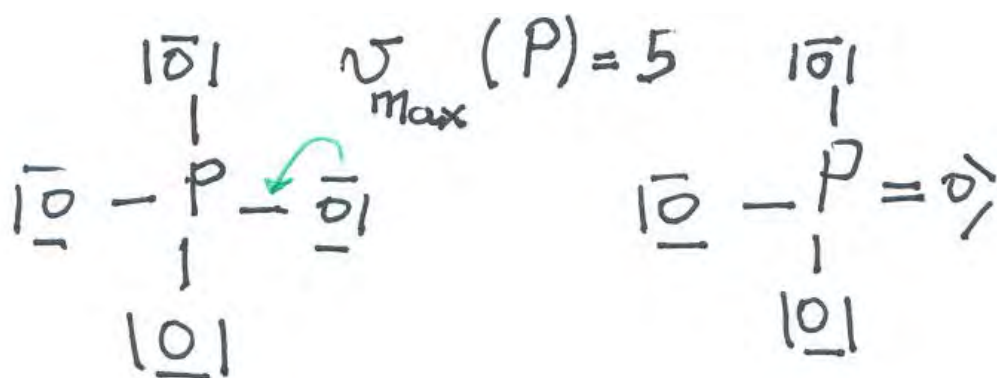 |O̅| v max (P) = 5 |O̅|
|O̅ - P - O̅| |O̅ - P = O
|O| |O|